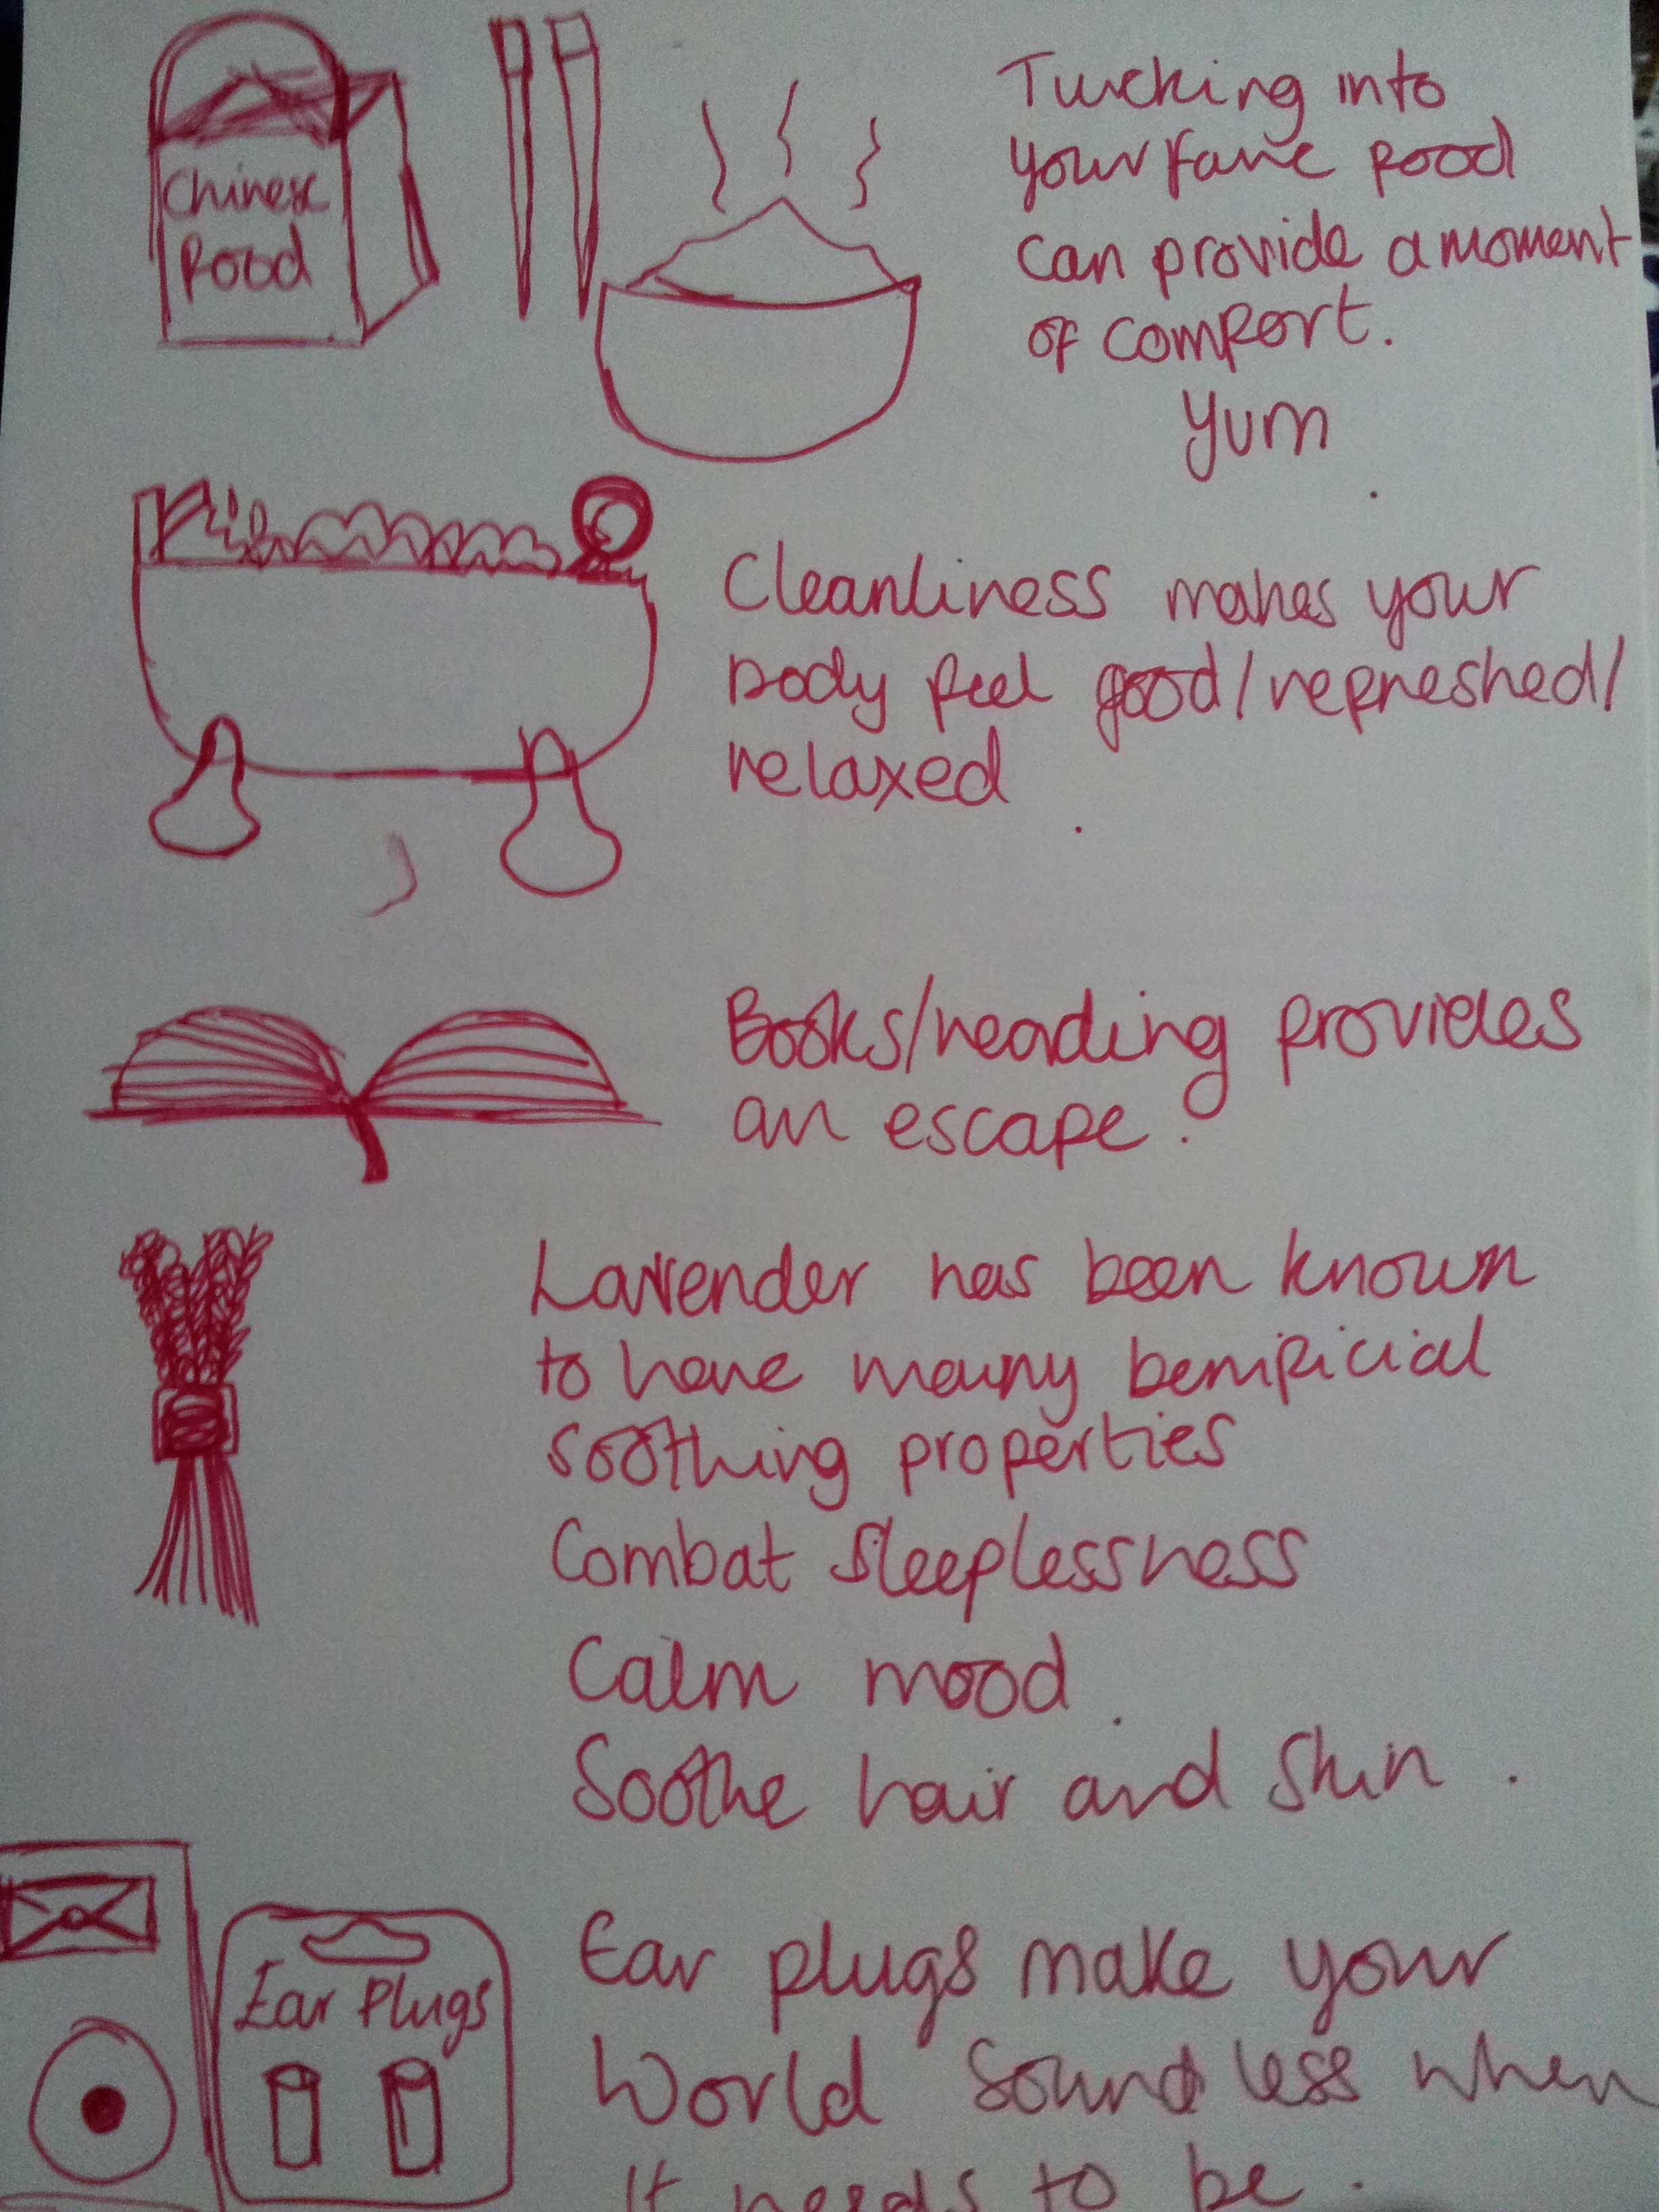 Chinese
Food
Tucking into
your fave food
can provide a moment
of comfort.
Yum
Cleanliness makes your
body feel good/refreshed/
relaxed
Books/reading provides
an escape.
Lavender has been known
to have many benificial
soothing properties
Combat Sleeplessness
Calm mood
Soothe hair and skin.
Ear Plugs
Ear plugs make your
World Soundless when
It needs to be.